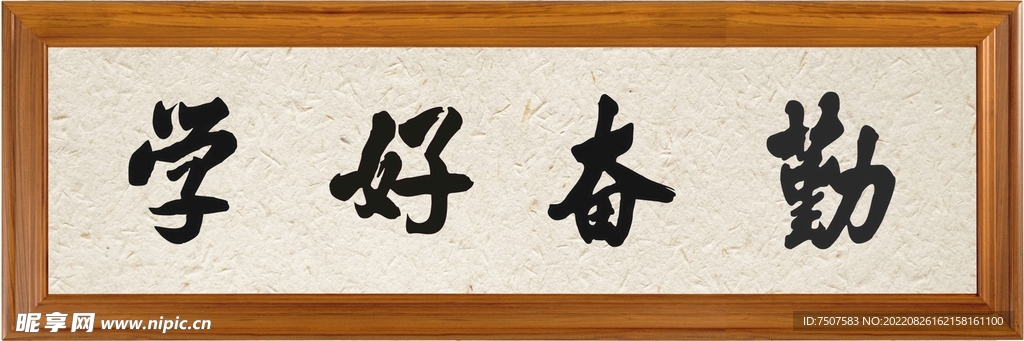 勤奋好学
昵享网 www.nipic.cn
ID:7507583 NO:20220826162158161100